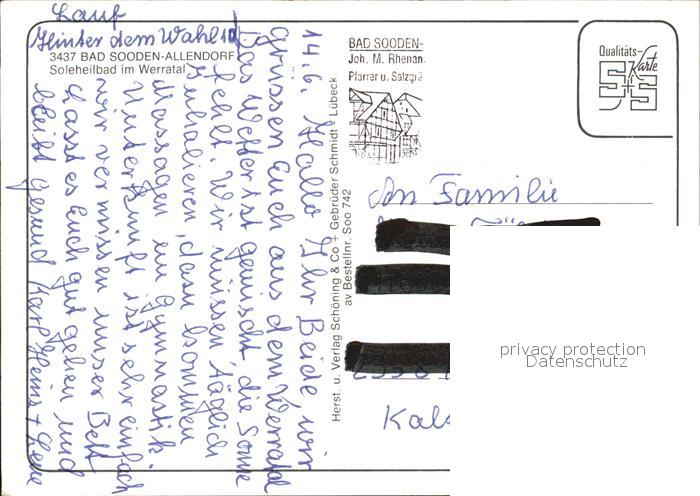 Lauf
Hinter dem Wahl 10
3437 BAD SOODEN-ALLENDORF
Soleheilbad im Werratal
14.6. Hallo Ihr Beide, wir
grüssen Euch aus dem Werratal
Das Wetter ist gemischt die Sonne
fehlt. Wir müssen täglich
Inhalieren, dazu kommen
Massagen un Gymnastik.
Unterkunft ist sehr einfach
wir vermissen unser Bett
Lasst es Euch gut gehen und
bleibt gesund Karl Heinz + Lene
Herst. u. Verlag Schöning & Co + Gebrüder Schmidt · Lübeck
av Bestellnr. Soo 742
BAD SOODEN-
Joh. M. Rhenan
Pfarrer u. Salzgrä
Qualitäts-
Karte
S+S
An Familie
Kals
privacy protection
Datenschutz